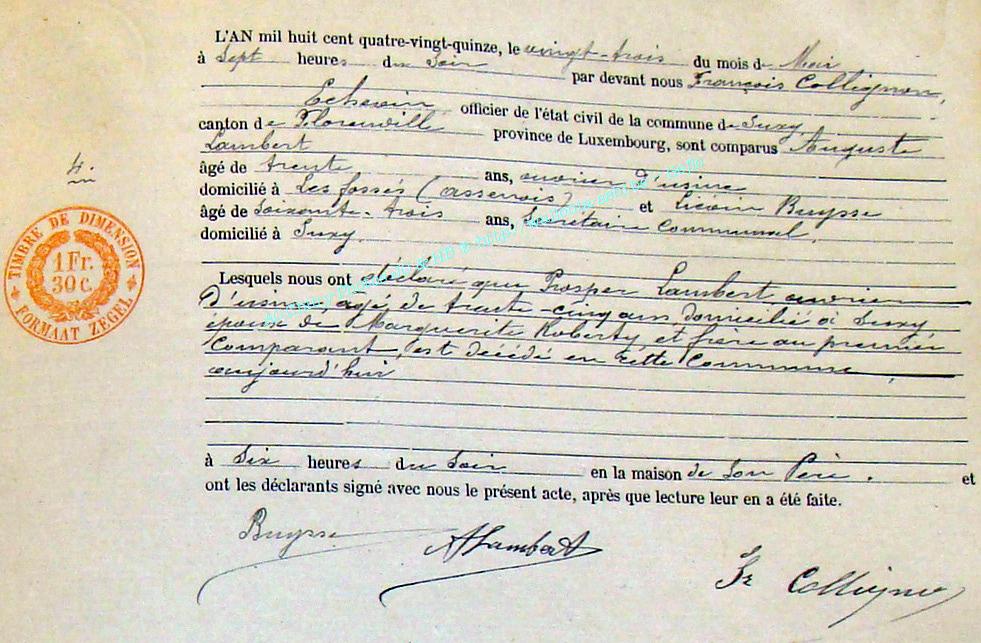 L'AN mil huit cent quatre-vingt-quinze, le vingt-trois du mois de Mai
à Sept heures du Soir par devant nous François Collignon,
Echevin, officier de l'état civil de la commune de Suxy,
canton de Florenville province de Luxembourg, sont comparus Auguste
Lambert
âgé de trente ans, ouvrier d'usine
domicilié à Les fossés (assenois) et Licoin Buysse
âgé de Soixante-trois ans, Secrétaire Communal.
domicilié à Suxy.
4.
TIMBRE DE DIMENSION
1 Fr.
30 c.
FORMAAT ZEGEL
Lesquels nous ont déclaré que Prosper Lambert, ouvrier
d'usine, agé de trente-cinq ans, domicilié à Suxy,
époux de Marguerite Roberty, et frère au premier
Comparant, est décédé en cette Commune,
aujourd'hui
à Six heures du Soir en la maison de Son Père. et
ont les déclarants signé avec nous le présent acte, après que lecture leur en a été faite.
Buysse
ALambert
Fr Collignon